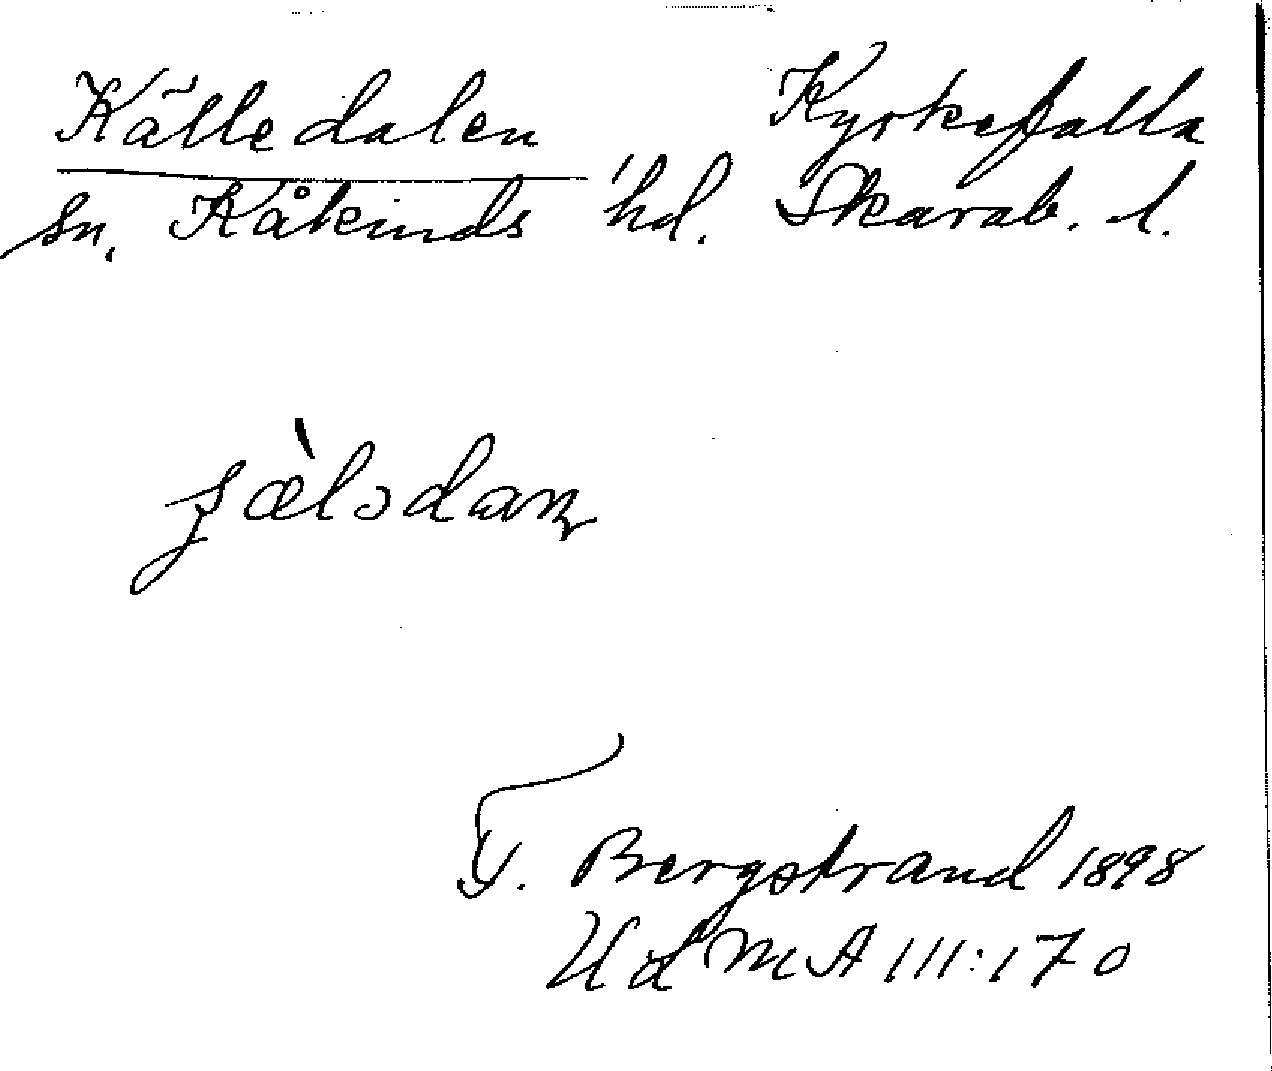 Källedalen Kyrkefalla
sn. Kåkinds hd. Skarab. l.
Bergstrand 1898
UdMA III:170